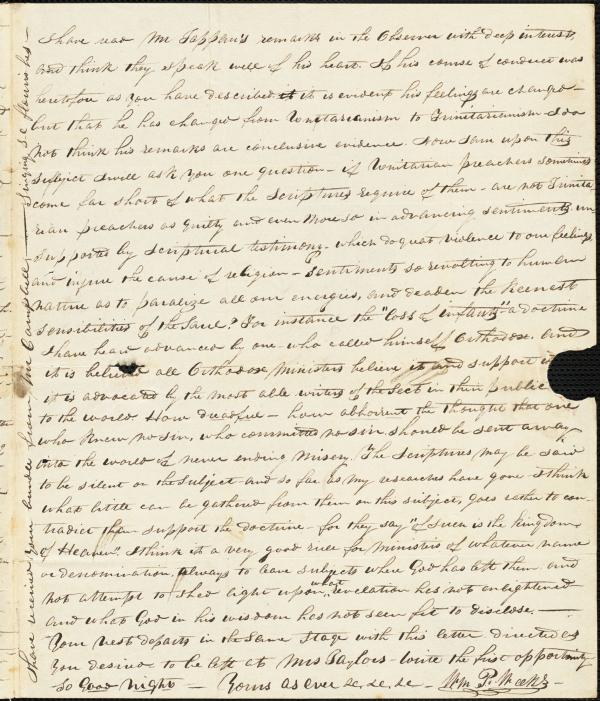 I have read Mr Tappan's remarks in the Observer with deep interest,
and think they speak well of his heart. If his course of conduct was
heretofore as you have described it it is evident his feelings are changed -
but that he has changed from Unitarianism to Trinitarianism I do
not think his remarks are conclusive evidence. Now I am upon this
subject I will ask you one question - if Unitarian preachers sometimes
come far short of what the Scriptures require of them - are not Trinita
rian preachers as guilty and even more so in advancing sentiments un
supported by Scriptural testimony - which do great violence to our feelings,
and injure the cause of religion - Sentiments so revolting to human
nature as to paralize all our energies, and deaden the keenest
sensibilities of the Soul? For instance the "loss of infants" a doctrine
I have heard advanced by one who called himself Orthodox. and
it is believed all Orthodox Ministers believe it and support it
it is advocated by the most able writers of the Sect in their public
to the world How dreadful - how abhorent the thought that one
who knew no sin, who committed no sin should be sent away
into the world of never ending misery. The Scriptures may be said
to be silent on the subject and so far as my researches have gone - I think
what little can be gathered from them on this subject, goes rather to con-
tradict than support the doctrine - for they say "of such is the kingdom
of Heaven". I think it a very good rule for Ministers of whatever name
or denomination, always to leave subjects where God has left them and
not attempt to shed light upon what revelation has not enlightened
and what God in his wisdom has not seen fit to disclose. -
Your vest departs in the same stage with this letter directed as
you desired to be left at Mrs Taylors - write the first opportunity
So Good Night - Yours as ever &c, &c, &c - Wm P. Weeks -
I have received your bundle from Mr Campbell, - Singing S. c flourishes -